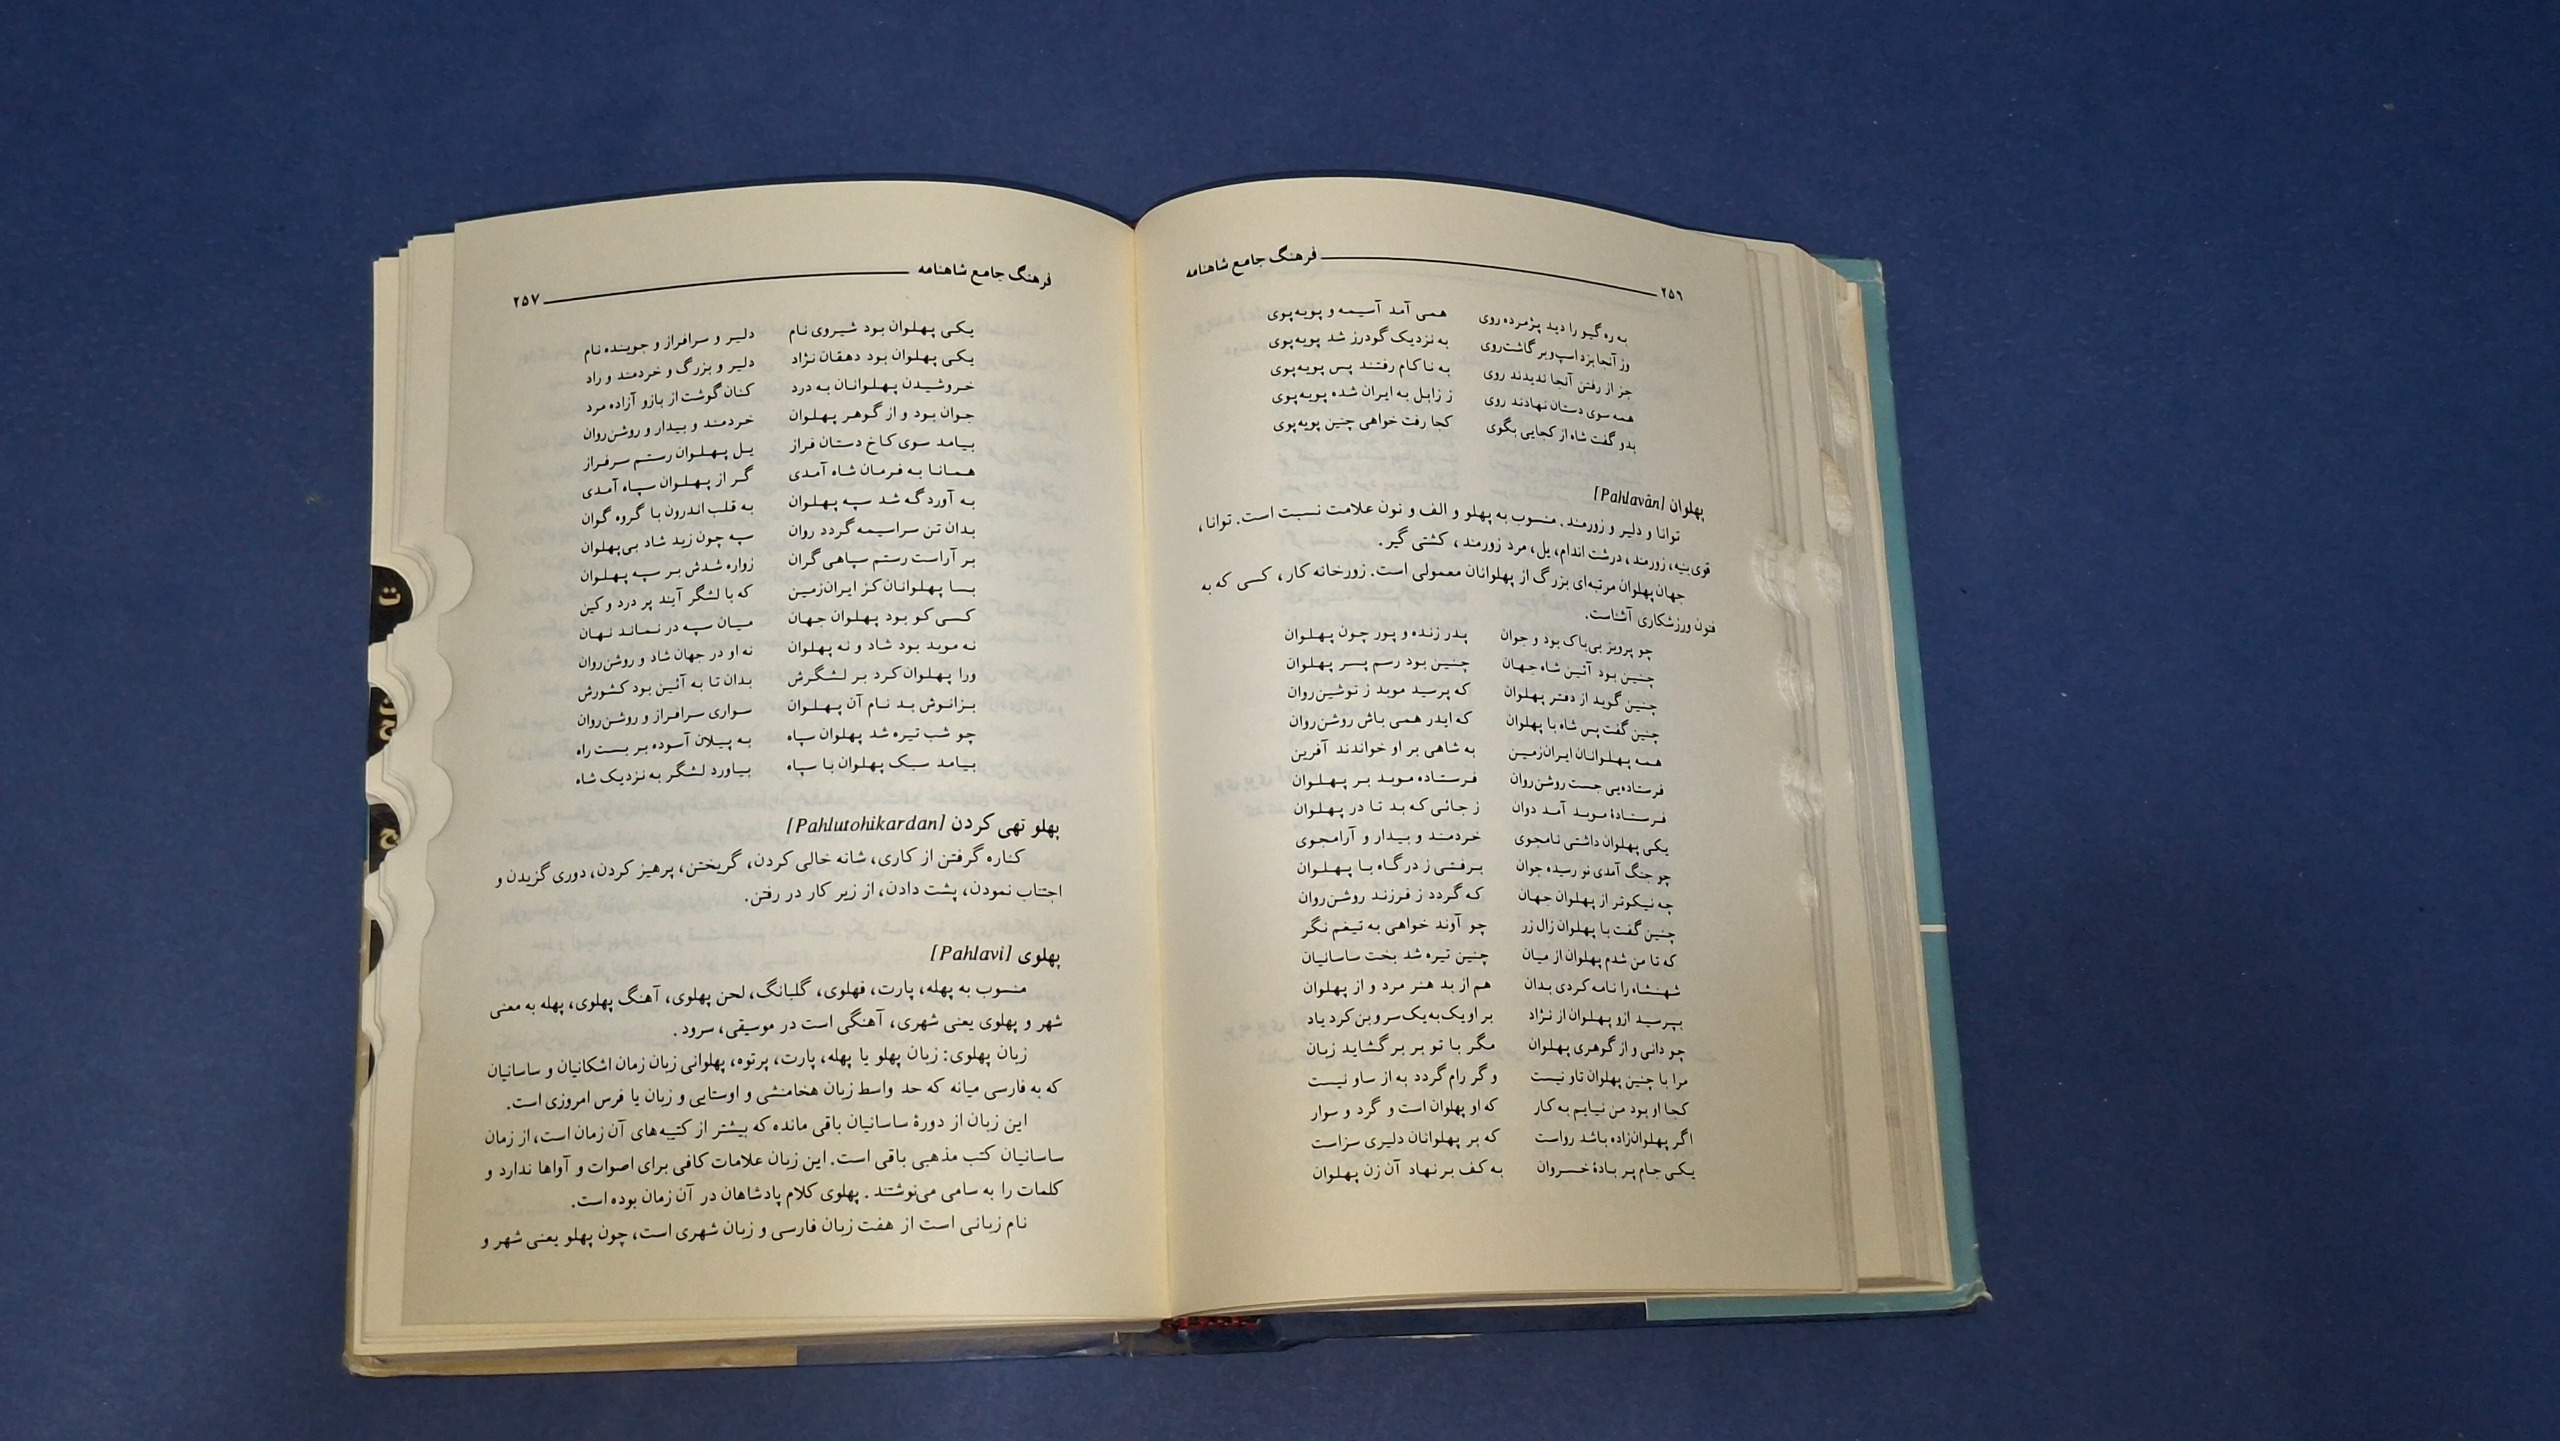 ۲۵۶ فرهنگ جامع شاهنامه
به ره گیو را دید پژمرده روی همی آمد آسیمه و پویه‌پوی
وز آنجا بزد اسپ و بر گاشت‌روی به نزدیک گودرز شد پویه‌پوی
جز از رفتن آنجا ندیدند روی به ناکام رفتند پس پویه‌پوی
همه سوی دستان نهادند روی ز زابل به ایران شده پویه‌پوی
بدو گفت شاه از کجایی بگوی کجا رفت خواهی چنین پویه‌پوی
پهلوان [Pahlavân]
توانا و دلیر و زورمند. منسوب به پهلو و الف و نون علامت نسبت است. توانا،
قوی‌بنیه، زورمند، درشت اندام، یل، مرد زورمند، کشتی گیر.
جهان پهلوان مرتبه‌ای بزرگ از پهلوانان معمولی است. زورخانه کار، کسی که به
فنون ورزشکاری آشناست.
چو پرویز بی‌باک بود و جوان پدر زنده و پور چون پهلوان
چنین بود آئین شاه جهان چنین بود رسم پسر پهلوان
چنین گوید از دفتر پهلوان که پرسید موبد ز نوشین‌روان
چنین گفت پس شاه با پهلوان که ایدر همی باش روشن‌روان
همه پهلوانان ایران‌زمین به شاهی بر او خواندند آفرین
فرستاده‌یی جست روشن‌روان فرستاده موبد بر پهلوان
فرستادهٔ موبد آمد دوان ز جائی که بد تا در پهلوان
یکی پهلوان داشتی نامجوی خردمند و بیدار و آرامجوی
چو جنگ آمدی نو رسیده جوان برفتی ز درگاه با پهلوان
چه نیکوتر از پهلوان جهان که گردد ز فرزند روشن‌روان
چنین گفت با پهلوان زال زر چو آوند خواهی به تیغم نگر
که تا من شدم پهلوان از میان چنین تیره شد بخت ساسانیان
شهنشاه را نامه کردی بدان هم از بد هنر مرد و از پهلوان
بپرسید ازو پهلوان از نژاد بر او یک‌به‌یک سروبن کرد یاد
چو دانی و از گوهری پهلوان مگر با تو بر برگشاید زبان
مرا با چنین پهلوان تاو نیست و گر رام گردد به از ساو نیست
کجا او بود من نیایم به کار که او پهلوان است و گرد و سوار
اگر پهلوان‌زاده باشد رواست که بر پهلوانان دلیری سزاست
یکی جام پر بادهٔ خسروان به کف بر نهاد آن زن پهلوان
فرهنگ جامع شاهنامه ۲۵۷
یکی پهلوان بود شیروی نام دلیر و سرافراز و جوینده نام
یکی پهلوان بود دهقان نژاد دلیر و بزرگ و خردمند و راد
خروشیدن پهلوانان به درد کنان گوشت از بازو آزاده مرد
جوان بود و از گوهر پهلوان خردمند و بیدار و روشن‌روان
بیامد سوی کاخ دستان فراز یل پهلوان رستم سرفراز
همانا به فرمان شاه آمدی گر از پهلوان سپاه آمدی
به آوردگه شد سپه پهلوان به قلب اندرون با گروه گوان
بدان تن سراسیمه گردد روان سپه چون زید شاد بی‌پهلوان
بر آراست رستم سپاهی گران زواره شدش بر سپه پهلوان
بسا پهلوانان کز ایران‌زمین که با لشگر آیند پر درد و کین
کسی کو بود پهلوان جهان میان سپه در نماند نهان
نه موبد بود شاد و نه پهلوان نه او در جهان شاد و روشن‌روان
ورا پهلوان کرد بر لشگرش بدان تا به آئین بود کشورش
بزانوش بد نام آن پهلوان سواری سرافراز و روشن‌روان
چو شب تیره شد پهلوان سپاه به پیلان آسوده بر بست راه
بیامد سبک پهلوان با سپاه بیاورد لشگر به نزدیک شاه
پهلو تهی کردن [Pahlutohikardan]
کناره گرفتن از کاری، شانه خالی کردن، گریختن، پرهیز کردن، دوری گزیدن و
اجتناب نمودن، پشت دادن، از زیر کار در رفتن.
پهلوی [Pahlavi]
منسوب به پهله، پارت، فهلوی، گلبانگ، لحن پهلوی، آهنگ پهلوی، پهله به معنی
شهر و پهلوی یعنی شهری، آهنگی است در موسیقی، سرود.
زبان پهلوی: زبان پهلو یا پهله، پارت، پرتوه، پهلوانی زبان زمان اشکانیان و ساسانیان
که به فارسی میانه که حد واسط زبان هخامنشی و اوستایی و زبان یا فرس امروزی است.
این زبان از دورهٔ ساسانیان باقی مانده که بیشتر از کتیبه‌های آن زمان است، از زمان
ساسانیان کتب مذهبی باقی است. این زبان علامات کافی برای اصوات و آواها ندارد و
کلمات را به سامی می‌نوشتند. پهلوی کلام پادشاهان در آن زمان بوده است.
نام زبانی است از هفت زبان فارسی و زبان شهری است، چون پهلو یعنی شهر و
ت
ح